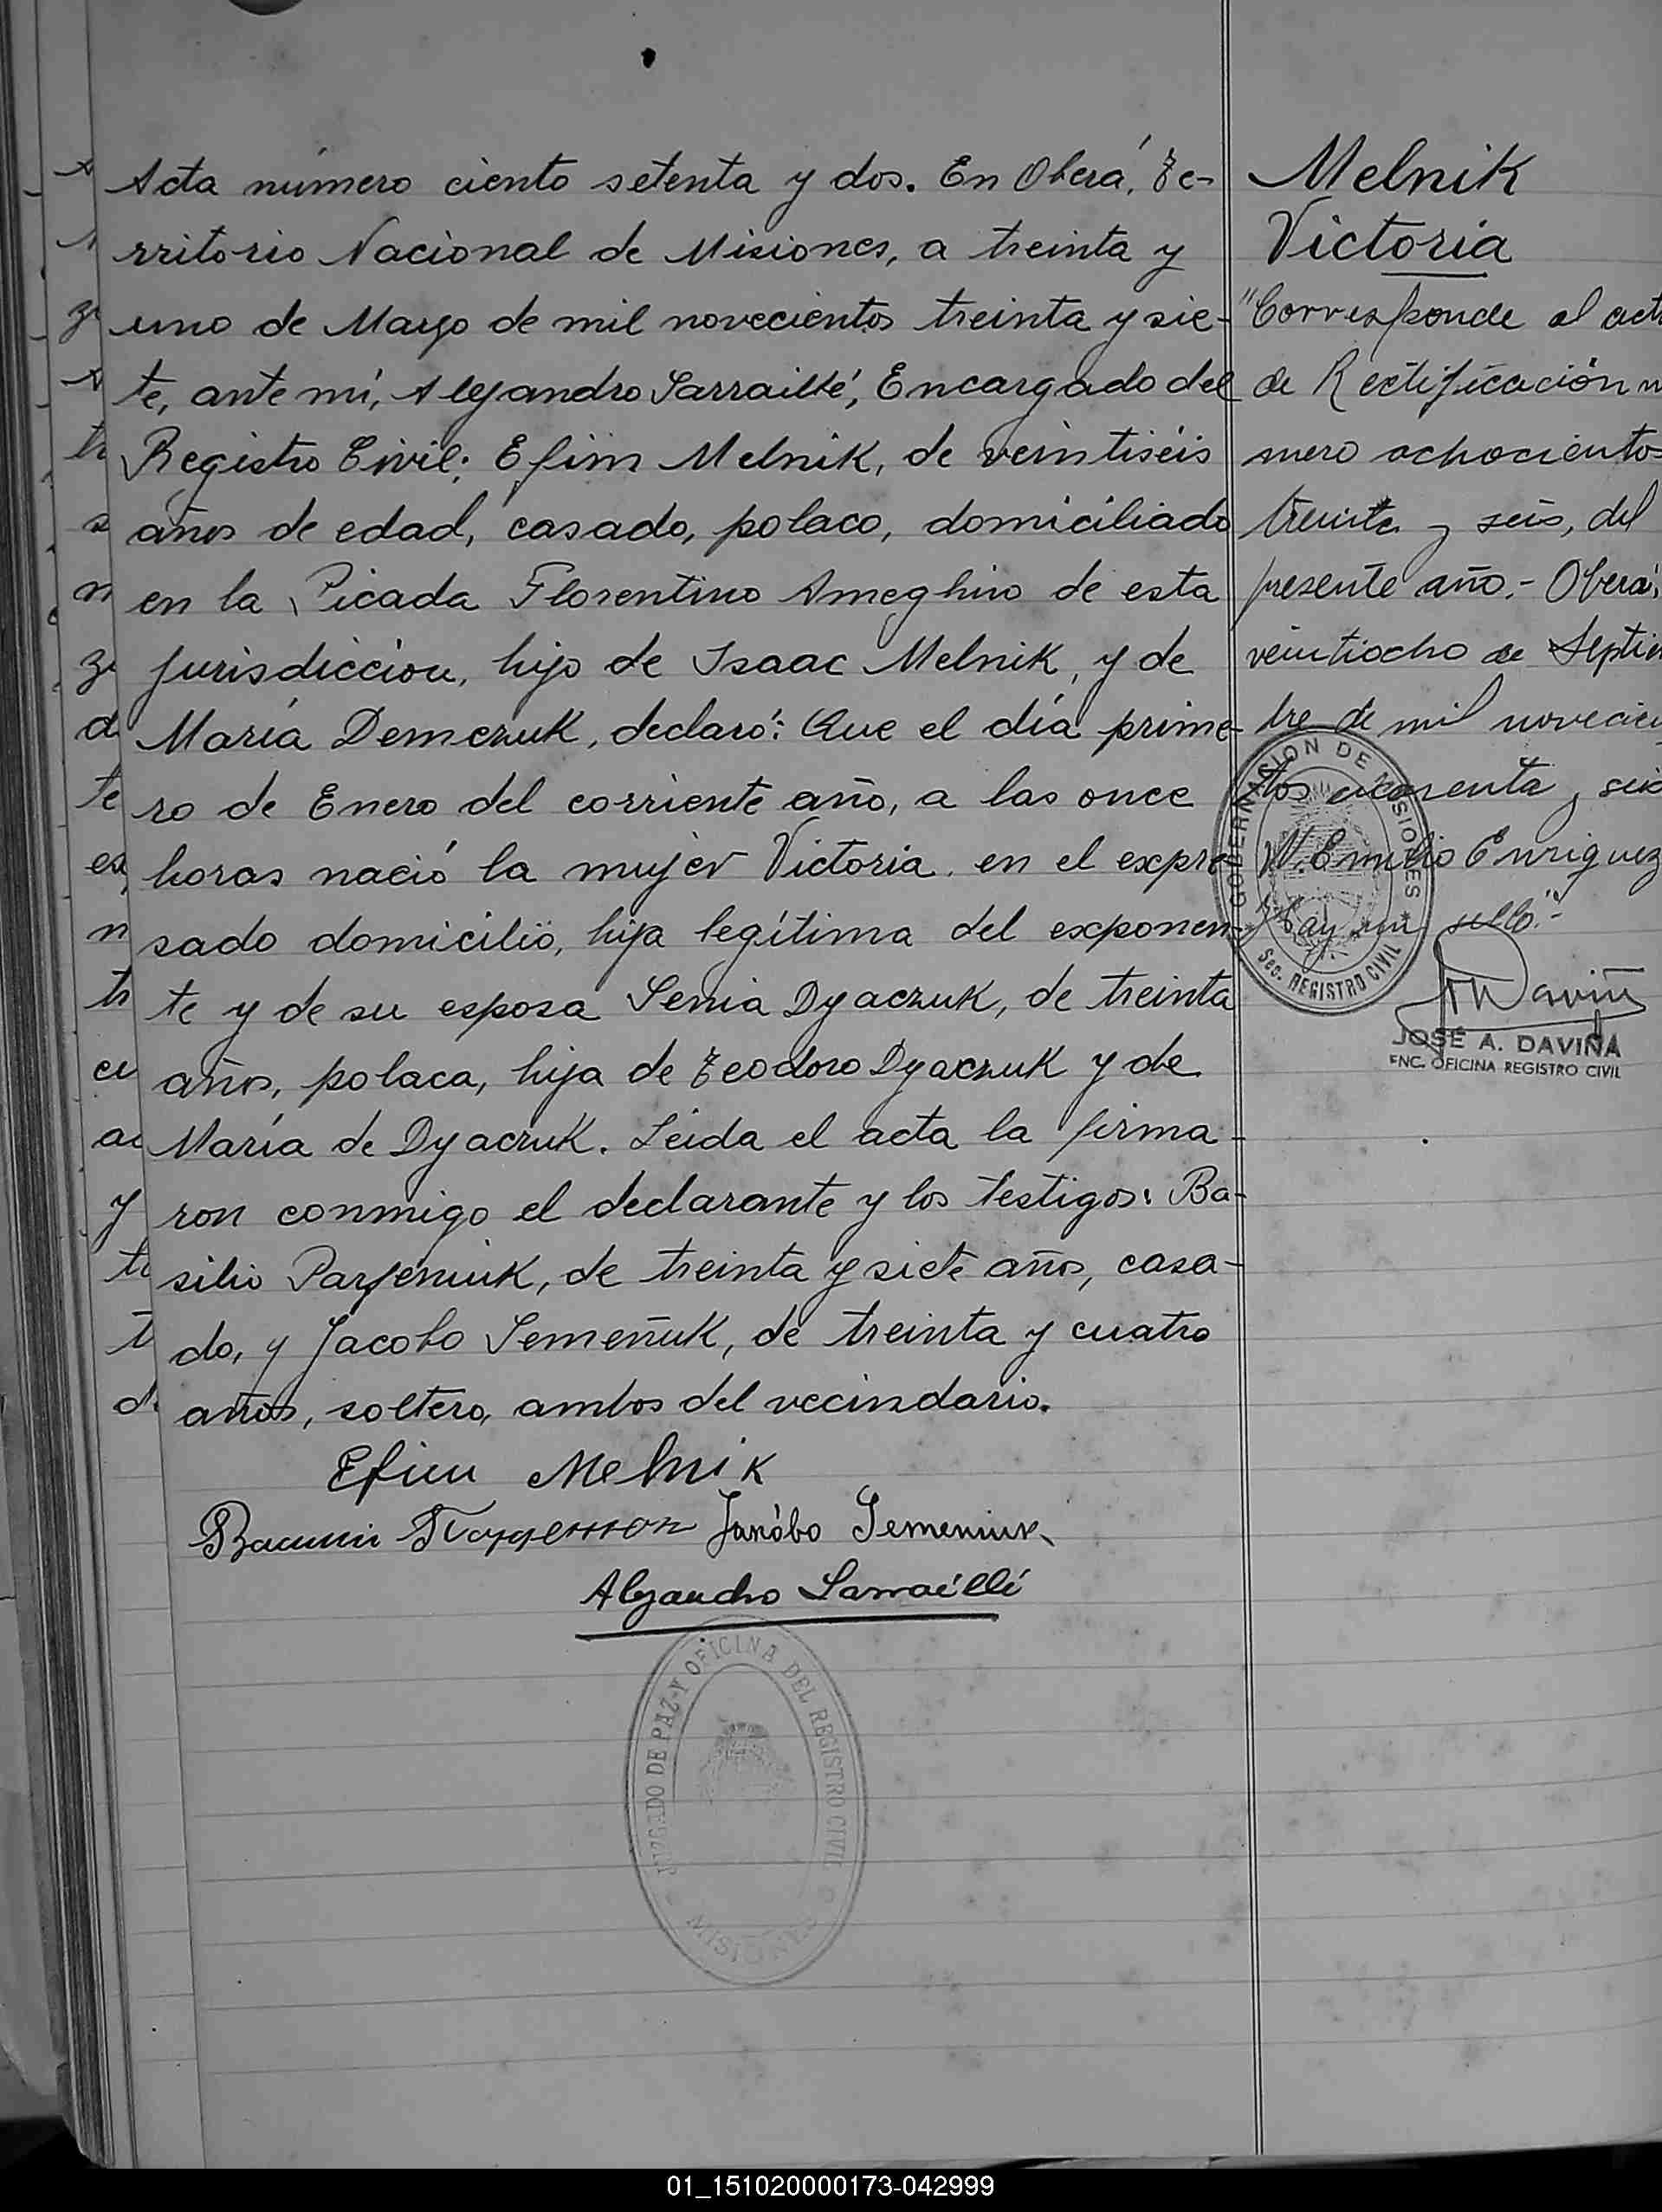 Acta número ciento setenta y dos. En Oberá, Te-
rritorio Nacional de Misiones, a treinta y
uno de Mayo de mil novecientos treinta y sie-
te, ante mí, Alejandro Sarraillé, Encargado del
Registro Civil; Efim Melnik, de veintiséis
años de edad, casado, polaco, domiciliado
en la Picada Florentino Ameghino de esta
jurisdiccion, hijo de Isaac Melnik, y de
María Demczuk, declaró: Que el día prime-
ro de Enero del corriente año, a las once
horas nació la mujer Victoria en el expre-
sado domicilio, hija legítima del exponen-
te y de su esposa Senia Dyaczuk, de treinta
años, polaca, hija de Teodoro Dyaczuk y de
María de Dyaczuk. Leida el acta la firma-
ron conmigo el declarante y los testigos: Ba-
silio Parfeniuk, de treinta y siete años, casa-
do, y Jacobo Semeñuk, de treinta y cuatro
años, soltero, ambos del vecindario.
Efim Melnik
Jakóbo Semeniuk
Alejandro Sarraillé
JUZGADO DE PAZ Y OFICINA DEL REGISTRO CIVIL
MISIONES
Melnik
Victoria
"Corresponde al acta
de Rectificación
mero ochociento
treinta y seis, del
presente año.- Oberá,
veintiocho de Septiem
bre de mil novecien
tos cuarenta y seis
N. Emilio Enriquez
Hay un sello."-
GOBERNACION DE MISIONES
Sec. REGISTRO CIVIL
JOSÉ A. DAVIÑA
ENC. OFICINA REGISTRO CIVIL
01_151020000173-042999